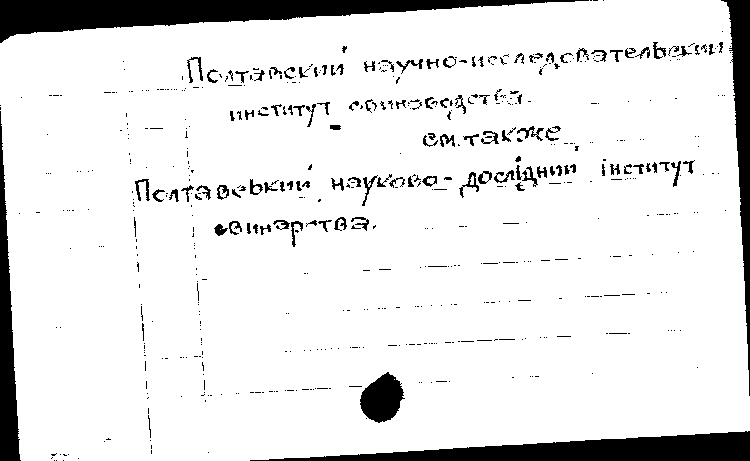 Полтавский научно-исследовательский
институт свиноводства.
см. также
Полтавський науково-дослідний інститут
свинарства.